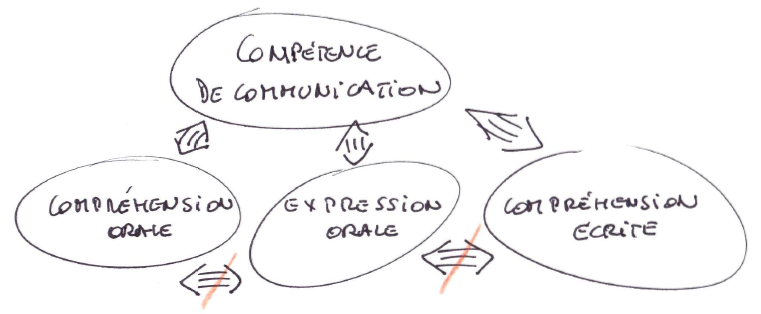 COMPÉTENCE
DE COMMUNICATION
COMPRÉHENSION
ORALE
EXPRESSION
ORALE
COMPRÉHENSION
ÉCRITE